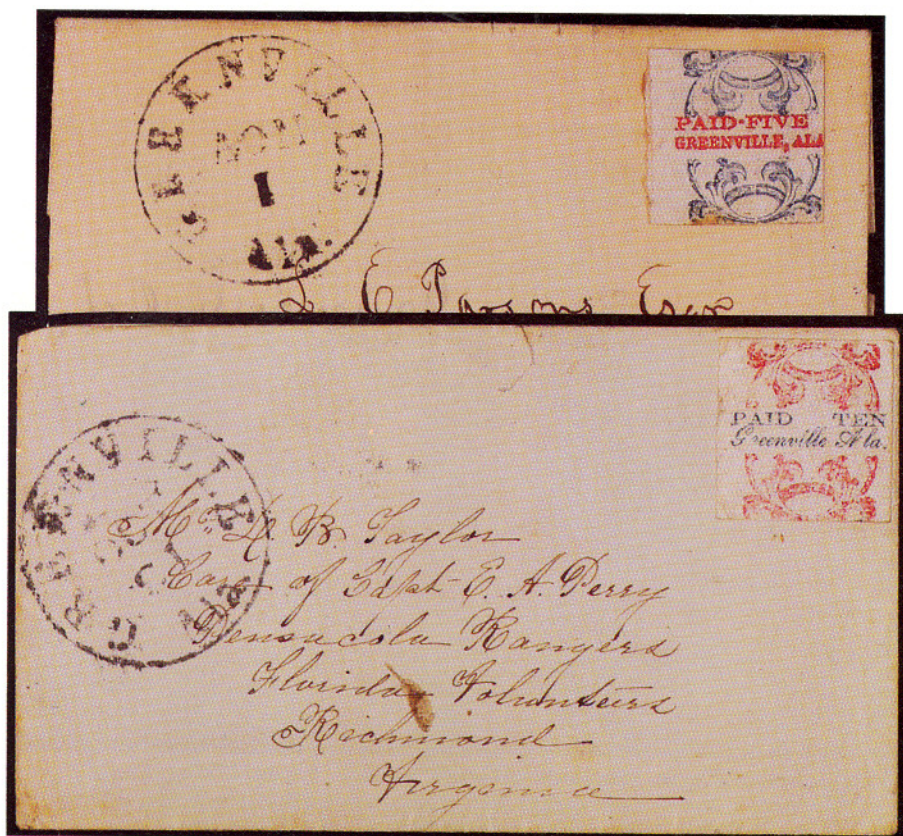 GREENVILLE
NOV
1
Ala.
PAID-FIVE
GREENVILLE, ALA
L. E. Parsons Esqr
PAID TEN
Greenville Ala.
GREENVILLE
Ala
Mr. D. B. Taylor
Care of Capt- E. A. Perry
Pensacola Rangers
Florida Volunteers
Richmond
Virginia